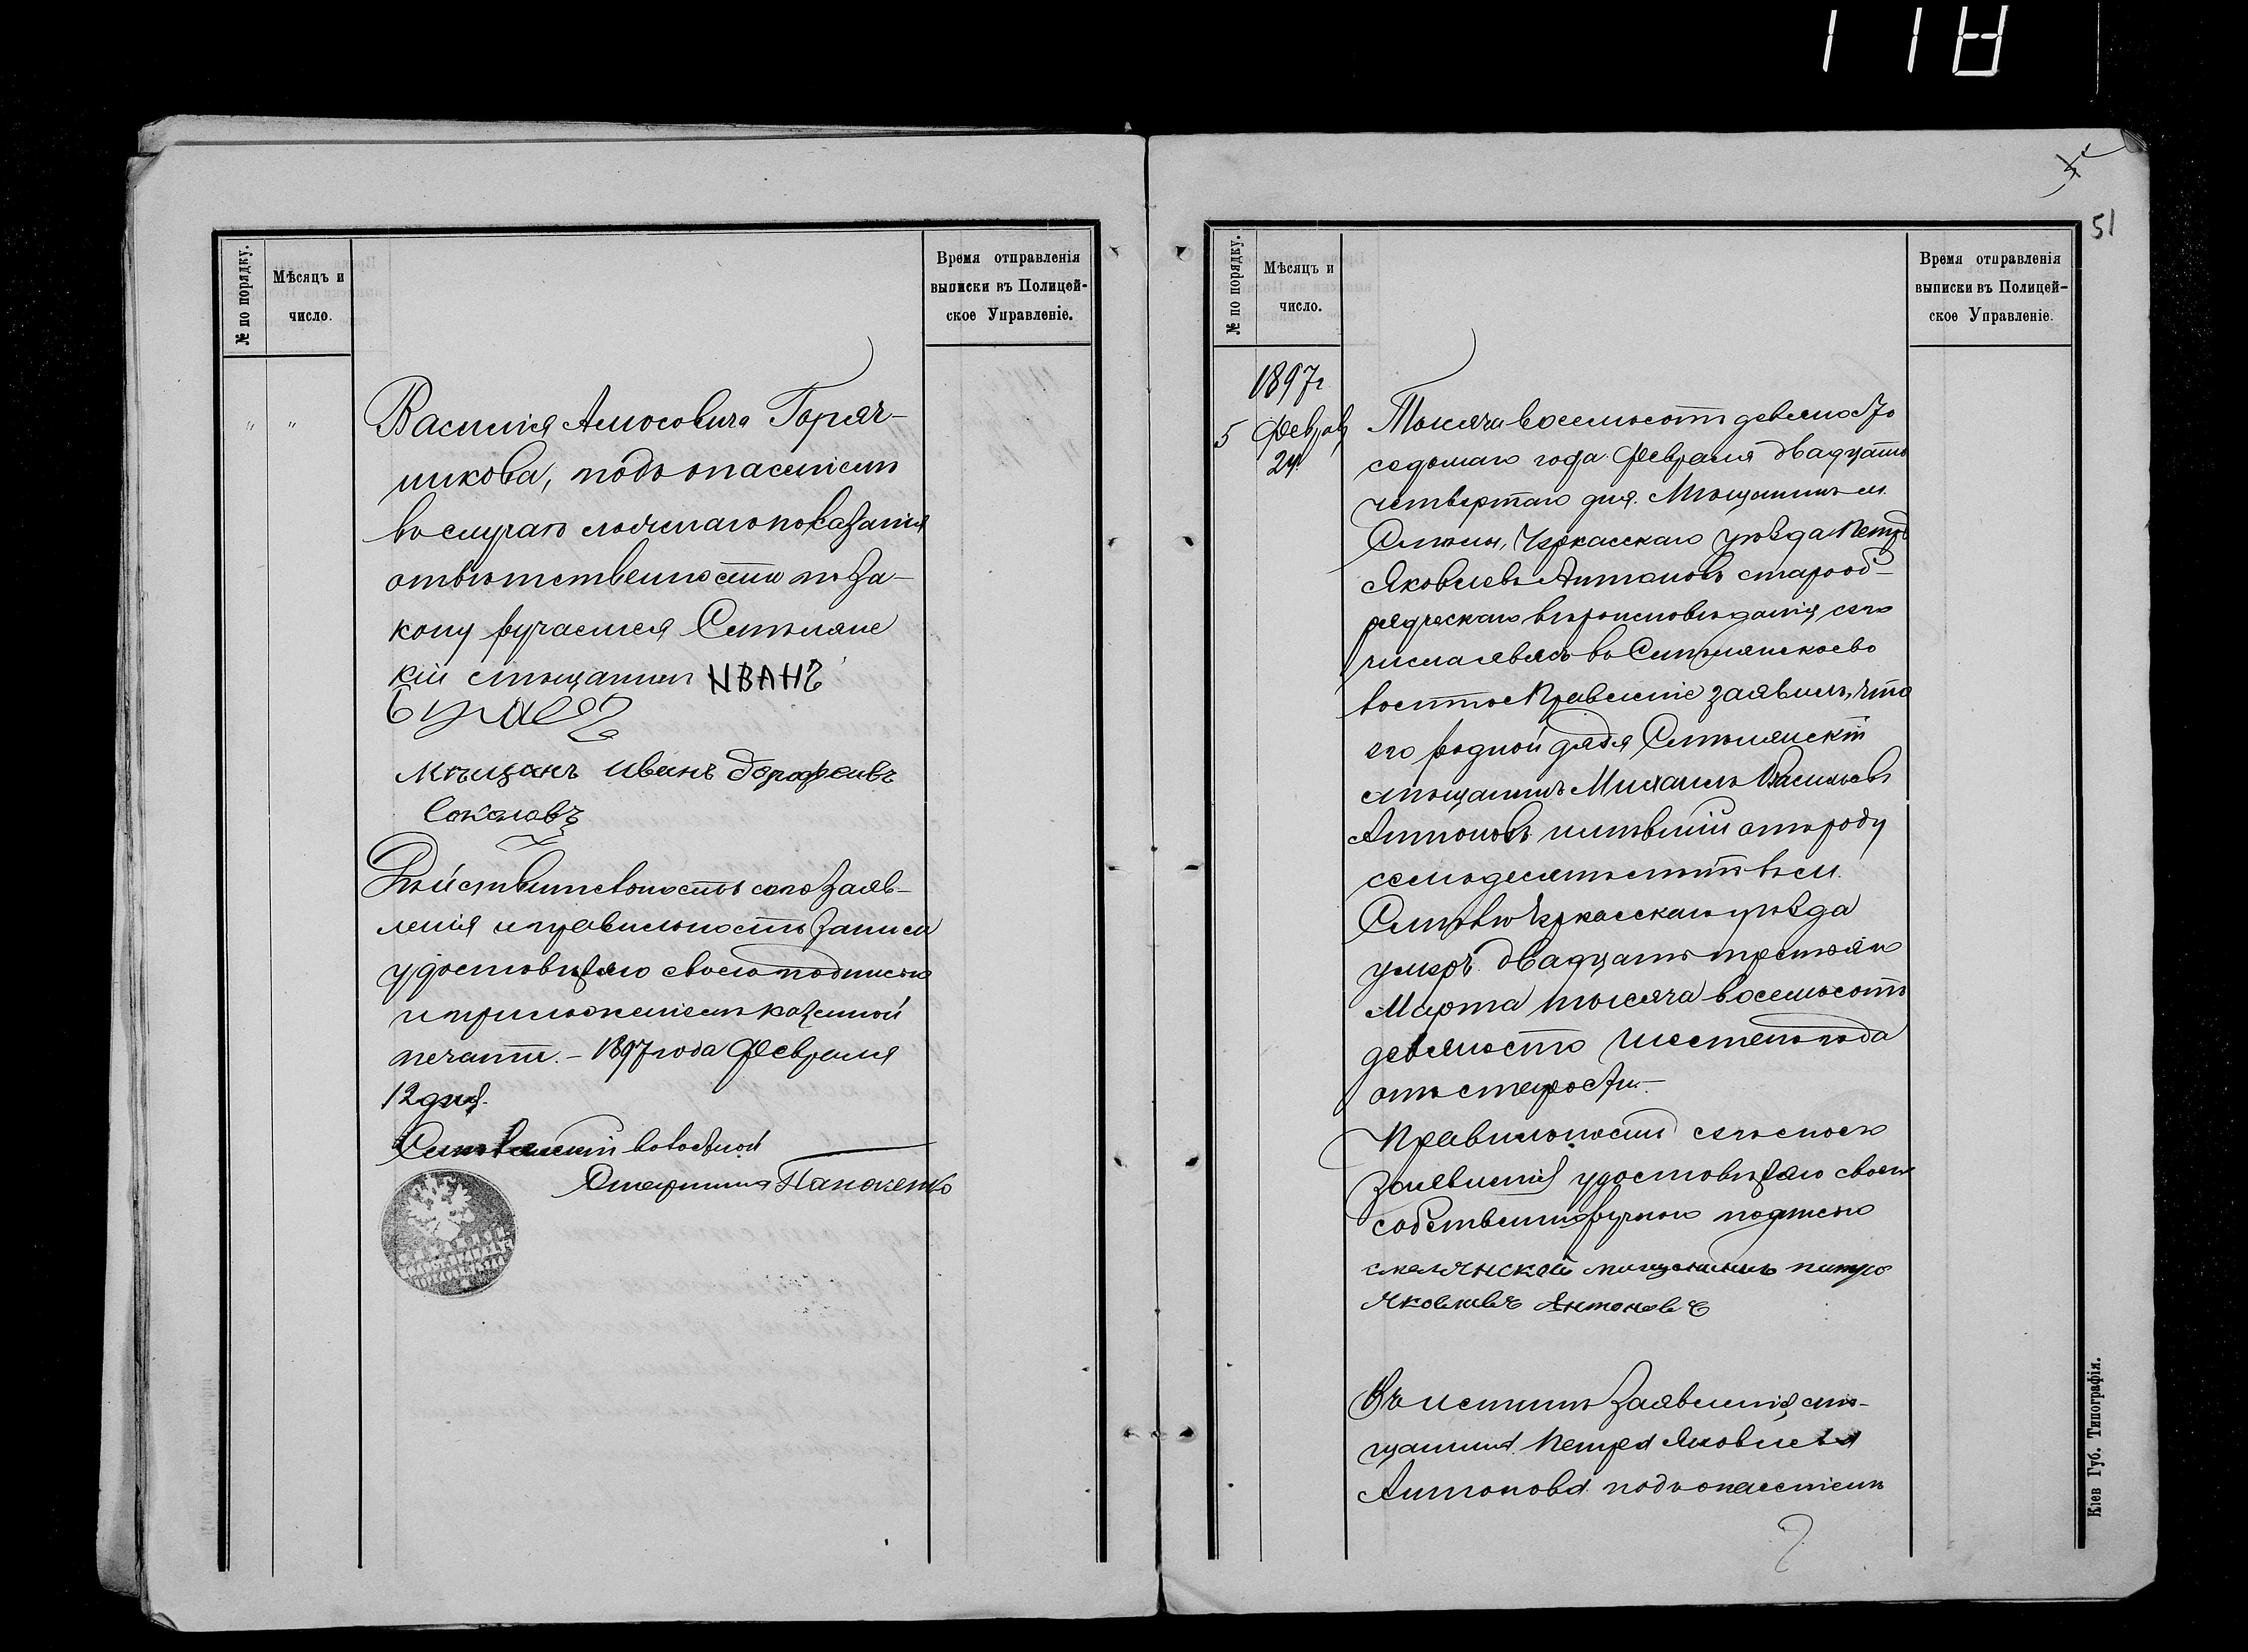 118
№ по порядку.
Мѣсяцъ и
число.
Время отправленія
выписки въ Полицей-
ское Управленіе.
" "
Василія Амосовича Горяч-
никова, подъ опасеніемъ
въ случаю ложнаго показанія
отвѣтственности по за-
кону ручаемся Смѣлянс
кій мѣщанинъ ИВАНЪ
Мѣщанъ Иванъ Дорофеивъ
Соколовъ
Дѣйствительность сего заяв-
ленія и правильность записи
удостовѣряю своею подписью
и приложеніемъ казенной
печати. – 1897 года Февраля
12 дня.
Смѣлянскій волостной
Старшина Панченко
51
№ по порядку.
Мѣсяцъ и
число.
Время отправленія
выписки въ Полицей-
ское Управленіе.
1897 г
5 Феврал
24
Тысяча восемьсотъ девяносто
седьмаго года Февраля двадцать
четвертаго дня. Мѣщанинъ м.
Смѣлы, Черкасскаго уѣзда Петръ
Яковлевъ Антоновъ старооб-
рядческаго вѣроисповѣданія, сего
числа явясь въ Смѣлянское во
лостное Правленіе заявилъ, что
его родной дядя Смѣлянскій
мѣщанинъ Михаилъ Васильевъ
Антоновъ имѣвшій отъ роду
семьдесятъ лѣтъ въ м.
Смѣлѣ Черкасскаго уѣзда
умеръ двадцать третьяго
Марта тысяча восемьсотъ
девяносто шестого года
отъ старости.–
Правильность сего моего
заявленія удостовѣряю своею
собственноручною подписью
смелянской мещанинъ петро
Яковливъ Антоновъ
Въ истинѣ заявленія мѣ-
щанина Петра Яковлева
Антонова подъ опасеніемъ
Кіев Губ. Типографія.